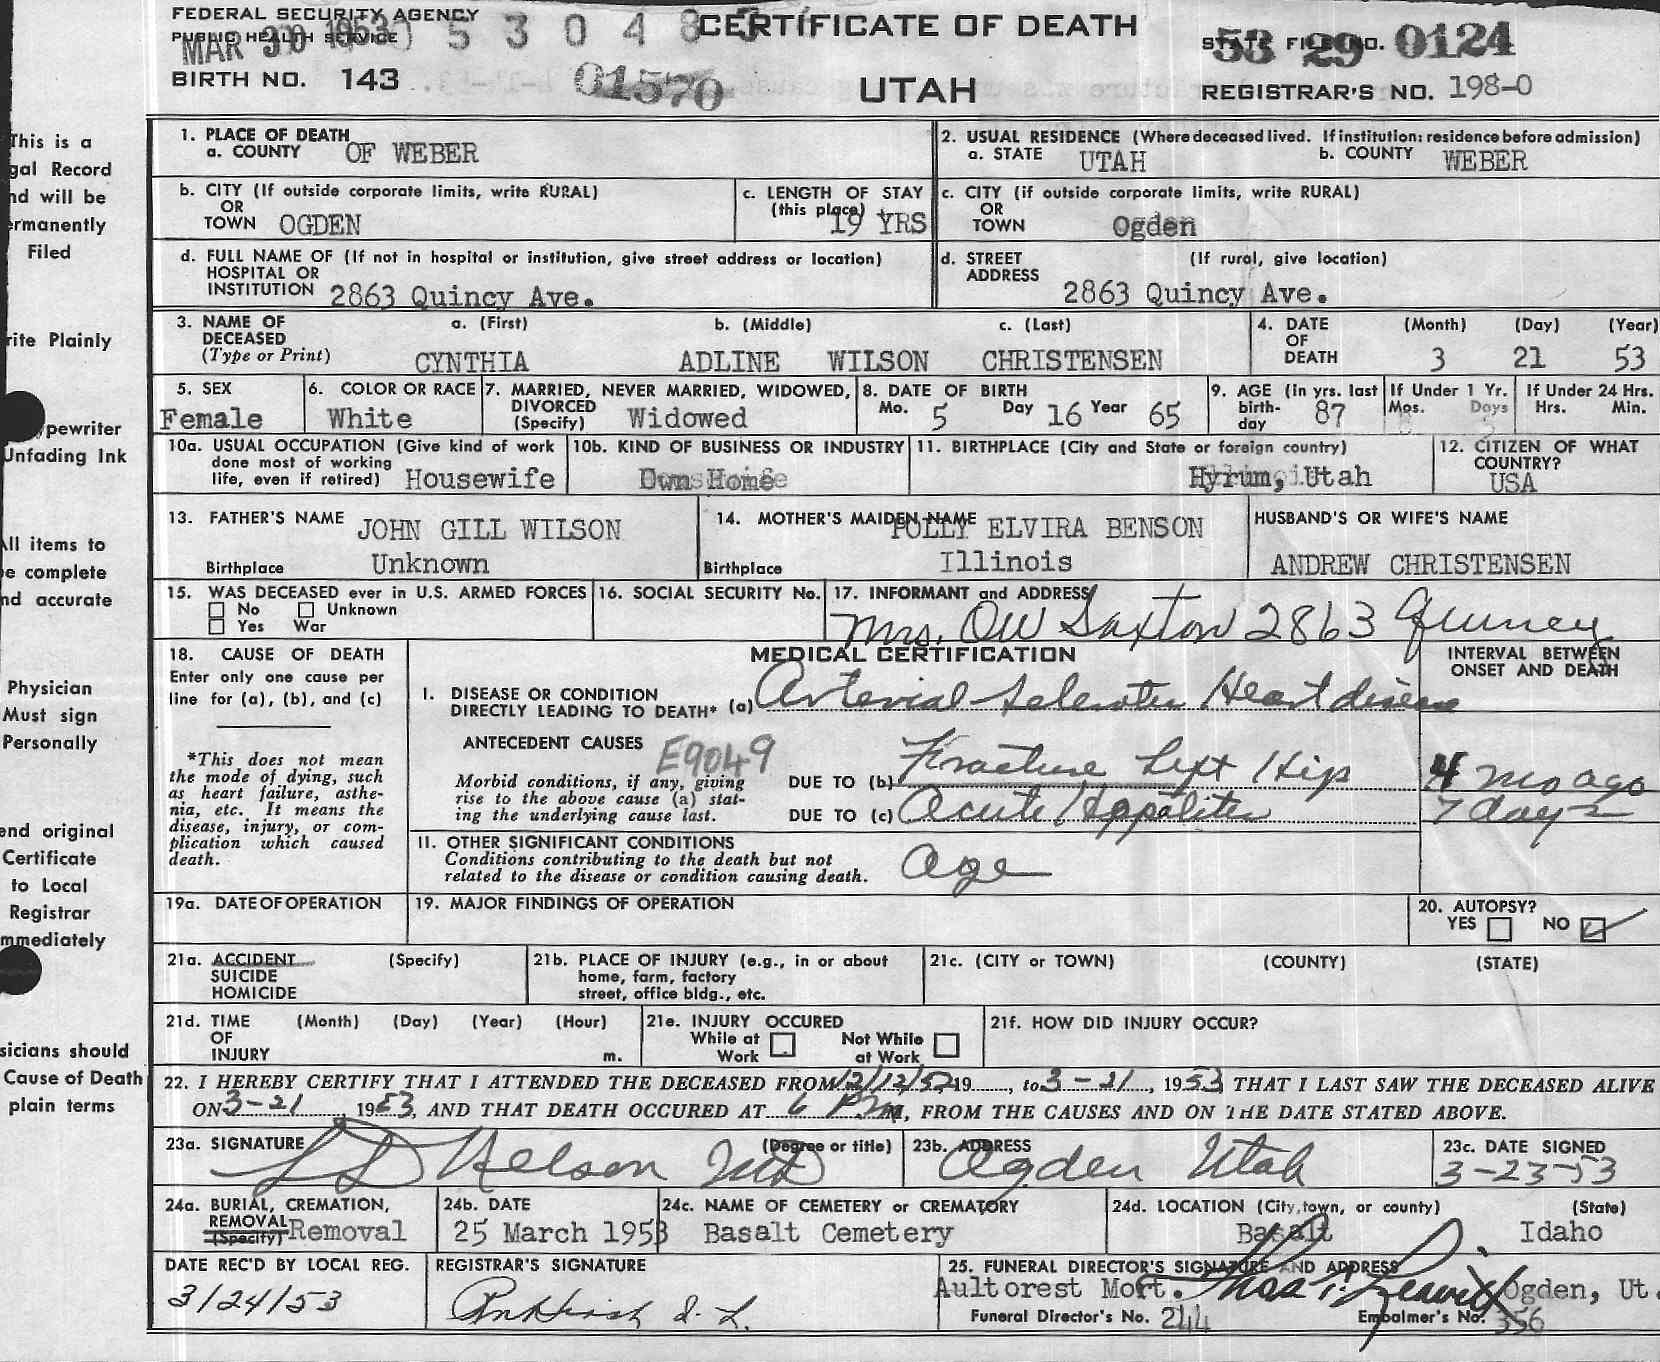 FEDERAL SECURITY AGENCY
PUBLIC HEALTH SERVICE
MAR 30 1953 0 5 3 0 4 8
CERTIFICATE OF DEATH
STATE FILE NO. 53 29 0124
BIRTH NO. 143
01570
UTAH
REGISTRAR'S NO. 198-0
This is a
gal Record
nd will be
rmanently
Filed
rite Plainly
ypewriter
Unfading Ink
All items to
e complete
nd accurate
Physician
Must sign
Personally
end original
Certificate
to Local
Registrar
mmediately
sicians should
Cause of Death
plain terms
1. PLACE OF DEATH
a. COUNTY OF WEBER
2. USUAL RESIDENCE (Where deceased lived. If institution: residence before admission)
a. STATE UTAH b. COUNTY WEBER
b. CITY (If outside corporate limits, write RURAL)
OR
TOWN OGDEN
c. LENGTH OF STAY
(this place) 19 YRS
c. CITY (if outside corporate limits, write RURAL)
OR
TOWN Ogden
d. FULL NAME OF (If not in hospital or institution, give street address or location)
HOSPITAL OR
INSTITUTION 2863 Quincy Ave.
d. STREET (If rural, give location)
ADDRESS
2863 Quincy Ave.
3. NAME OF DECEASED (Type or Print)
a. (First) b. (Middle) c. (Last)
CYNTHIA ADLINE WILSON CHRISTENSEN
4. DATE OF DEATH (Month) (Day) (Year)
3 21 53
5. SEX
Female
6. COLOR OR RACE
White
7. MARRIED, NEVER MARRIED, WIDOWED,
DIVORCED
(Specify) Widowed
8. DATE OF BIRTH
Mo. 5 Day 16 Year 65
9. AGE (in yrs. last
birth-
day 87
If Under 1 Yr.
Mos. Days
If Under 24 Hrs.
Hrs. Min.
10a. USUAL OCCUPATION (Give kind of work
done most of working
life, even if retired) Housewife
10b. KIND OF BUSINESS OR INDUSTRY
Own Home
11. BIRTHPLACE (City and State or foreign country)
Hyrum, Utah
12. CITIZEN OF WHAT
COUNTRY?
USA
13. FATHER'S NAME JOHN GILL WILSON
Birthplace Unknown
14. MOTHER'S MAIDEN NAME POLLY ELVIRA BENSON
Birthplace Illinois
HUSBAND'S OR WIFE'S NAME
ANDREW CHRISTENSEN
15. WAS DECEASED ever in U.S. ARMED FORCES
No Unknown
Yes War
16. SOCIAL SECURITY No.
17. INFORMANT and ADDRESS
Mrs. OW Saxton 2863 Quincy
18. CAUSE OF DEATH
Enter only one cause per
line for (a), (b), and (c)
*This does not mean
the mode of dying, such
as heart failure, asthe-
nia, etc. It means the
disease, injury, or com-
plication which caused
death.
MEDICAL CERTIFICATION
INTERVAL BETWEEN
ONSET AND DEATH
I. DISEASE OR CONDITION
DIRECTLY LEADING TO DEATH* (a) Arterial Sclerotic Heart disease
ANTECEDENT CAUSES E9049
Morbid conditions, if any, giving
rise to the above cause (a) stat-
ing the underlying cause last.
DUE TO (b) Fracture Left Hip 4 mo ago
DUE TO (c) Acute 7 days
11. OTHER SIGNIFICANT CONDITIONS
Conditions contributing to the death but not
related to the disease or condition causing death.
Age
19a. DATE OF OPERATION
19. MAJOR FINDINGS OF OPERATION
20. AUTOPSY?
YES NO
21a. ACCIDENT (Specify)
SUICIDE
HOMICIDE
21b. PLACE OF INJURY (e.g., in or about
home, farm, factory
street, office bldg., etc.
21c. (CITY or TOWN) (COUNTY) (STATE)
21d. TIME (Month) (Day) (Year) (Hour)
OF
INJURY m.
21e. INJURY OCCURED
While at Work Not While at Work
21f. HOW DID INJURY OCCUR?
22. I HEREBY CERTIFY THAT I ATTENDED THE DECEASED FROM 12/12/52 19......, to 3-21, 1953, THAT I LAST SAW THE DECEASED ALIVE
ON 3-21, 1953, AND THAT DEATH OCCURED AT 6 P m, FROM THE CAUSES AND ON THE DATE STATED ABOVE.
23a. SIGNATURE (Degree or title)
L D Nelson MD
23b. ADDRESS
Ogden Utah
23c. DATE SIGNED
3-23-53
24a. BURIAL, CREMATION,
REMOVAL
(Specify) Removal
24b. DATE
25 March 1953
24c. NAME OF CEMETERY or CREMATORY
Basalt Cemetery
24d. LOCATION (City, town, or county) (State)
Basalt Idaho
DATE REC'D BY LOCAL REG.
3/24/53
REGISTRAR'S SIGNATURE
25. FUNERAL DIRECTOR'S SIGNATURE AND ADDRESS
Aultorest Mort. Ogden, Ut.
Funeral Director's No. 244
Embalmer's No. 356